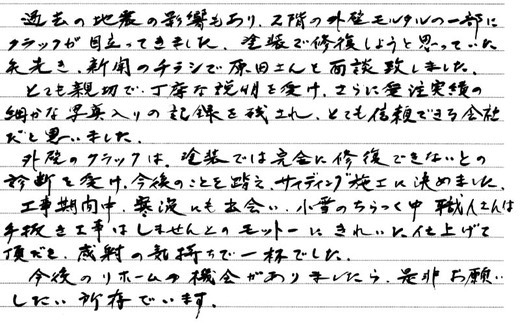 過去の地震の影響もあり、2階の外壁モルタルの一部に
クラックが目立ってきました。塗装で修復しようと思っていた
矢先き、新聞のチラシで原田さんと面談致しました。
とても親切で、丁寧な説明を受け、さらに受注実績の
細かな写真入りの記録を残され、とても信頼できる会社
だと思いました。
外壁のクラックは、塗装では完全に修復できないとの
診断を受け、今後のことを踏え、サイディング施工に決めました。
工事期間中、寒波にも出会い、小雪のちらつく中 職人さんは
手抜き工事はしませんとのモットーにきれいに仕上げて
頂だき、感謝の気持ちで一杯でした。
今後のリホームの機会がありましたら、是非お願い
したい所存でいます。